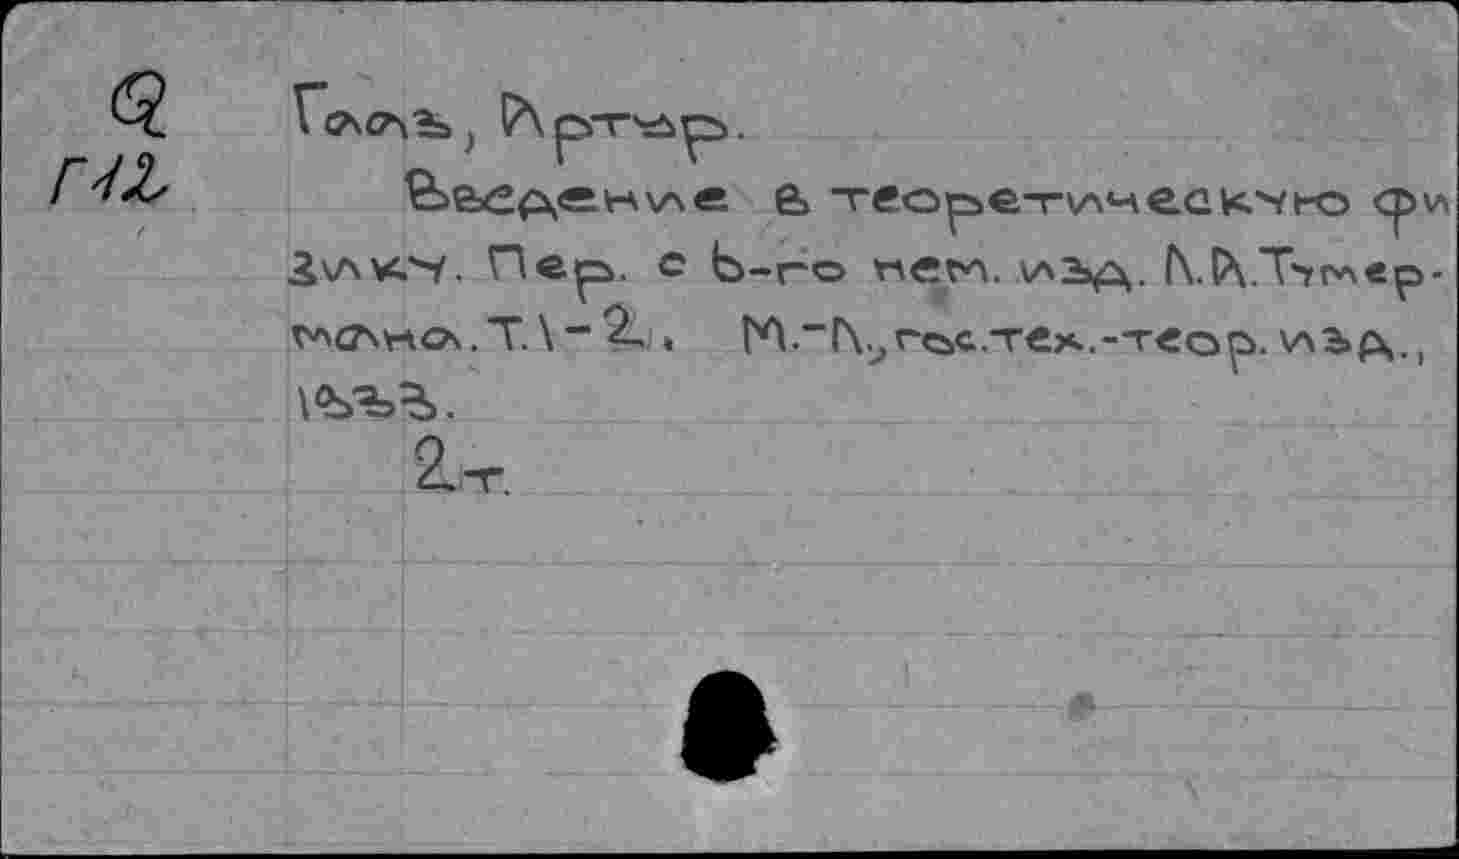 Q
Г12
Гааз, Артур.
Введение в теоретическую фи
зику. Пер. с 6-го нем. изд. Л.А.Тумер-
мана. Т.1-2. М.-Л., гос.тех.-теор. изд.,
1933.
2 т.